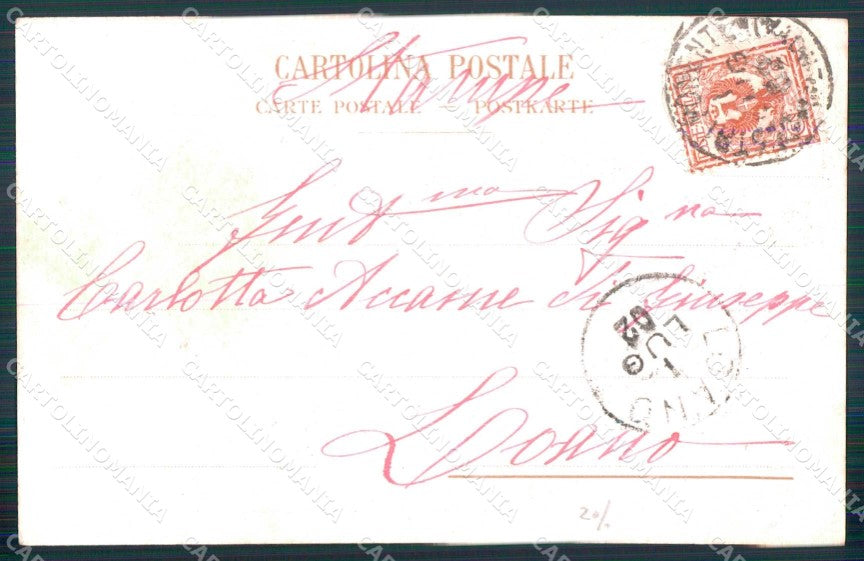 CARTOLINA POSTALE
Stampe
CARTE POSTALE – POSTKARTE
Gent.ma Sig.na
Carlotta Accame di Giuseppe
Loano
LOANO
1
LUG
02
20/.
CARTOLINOMANIA